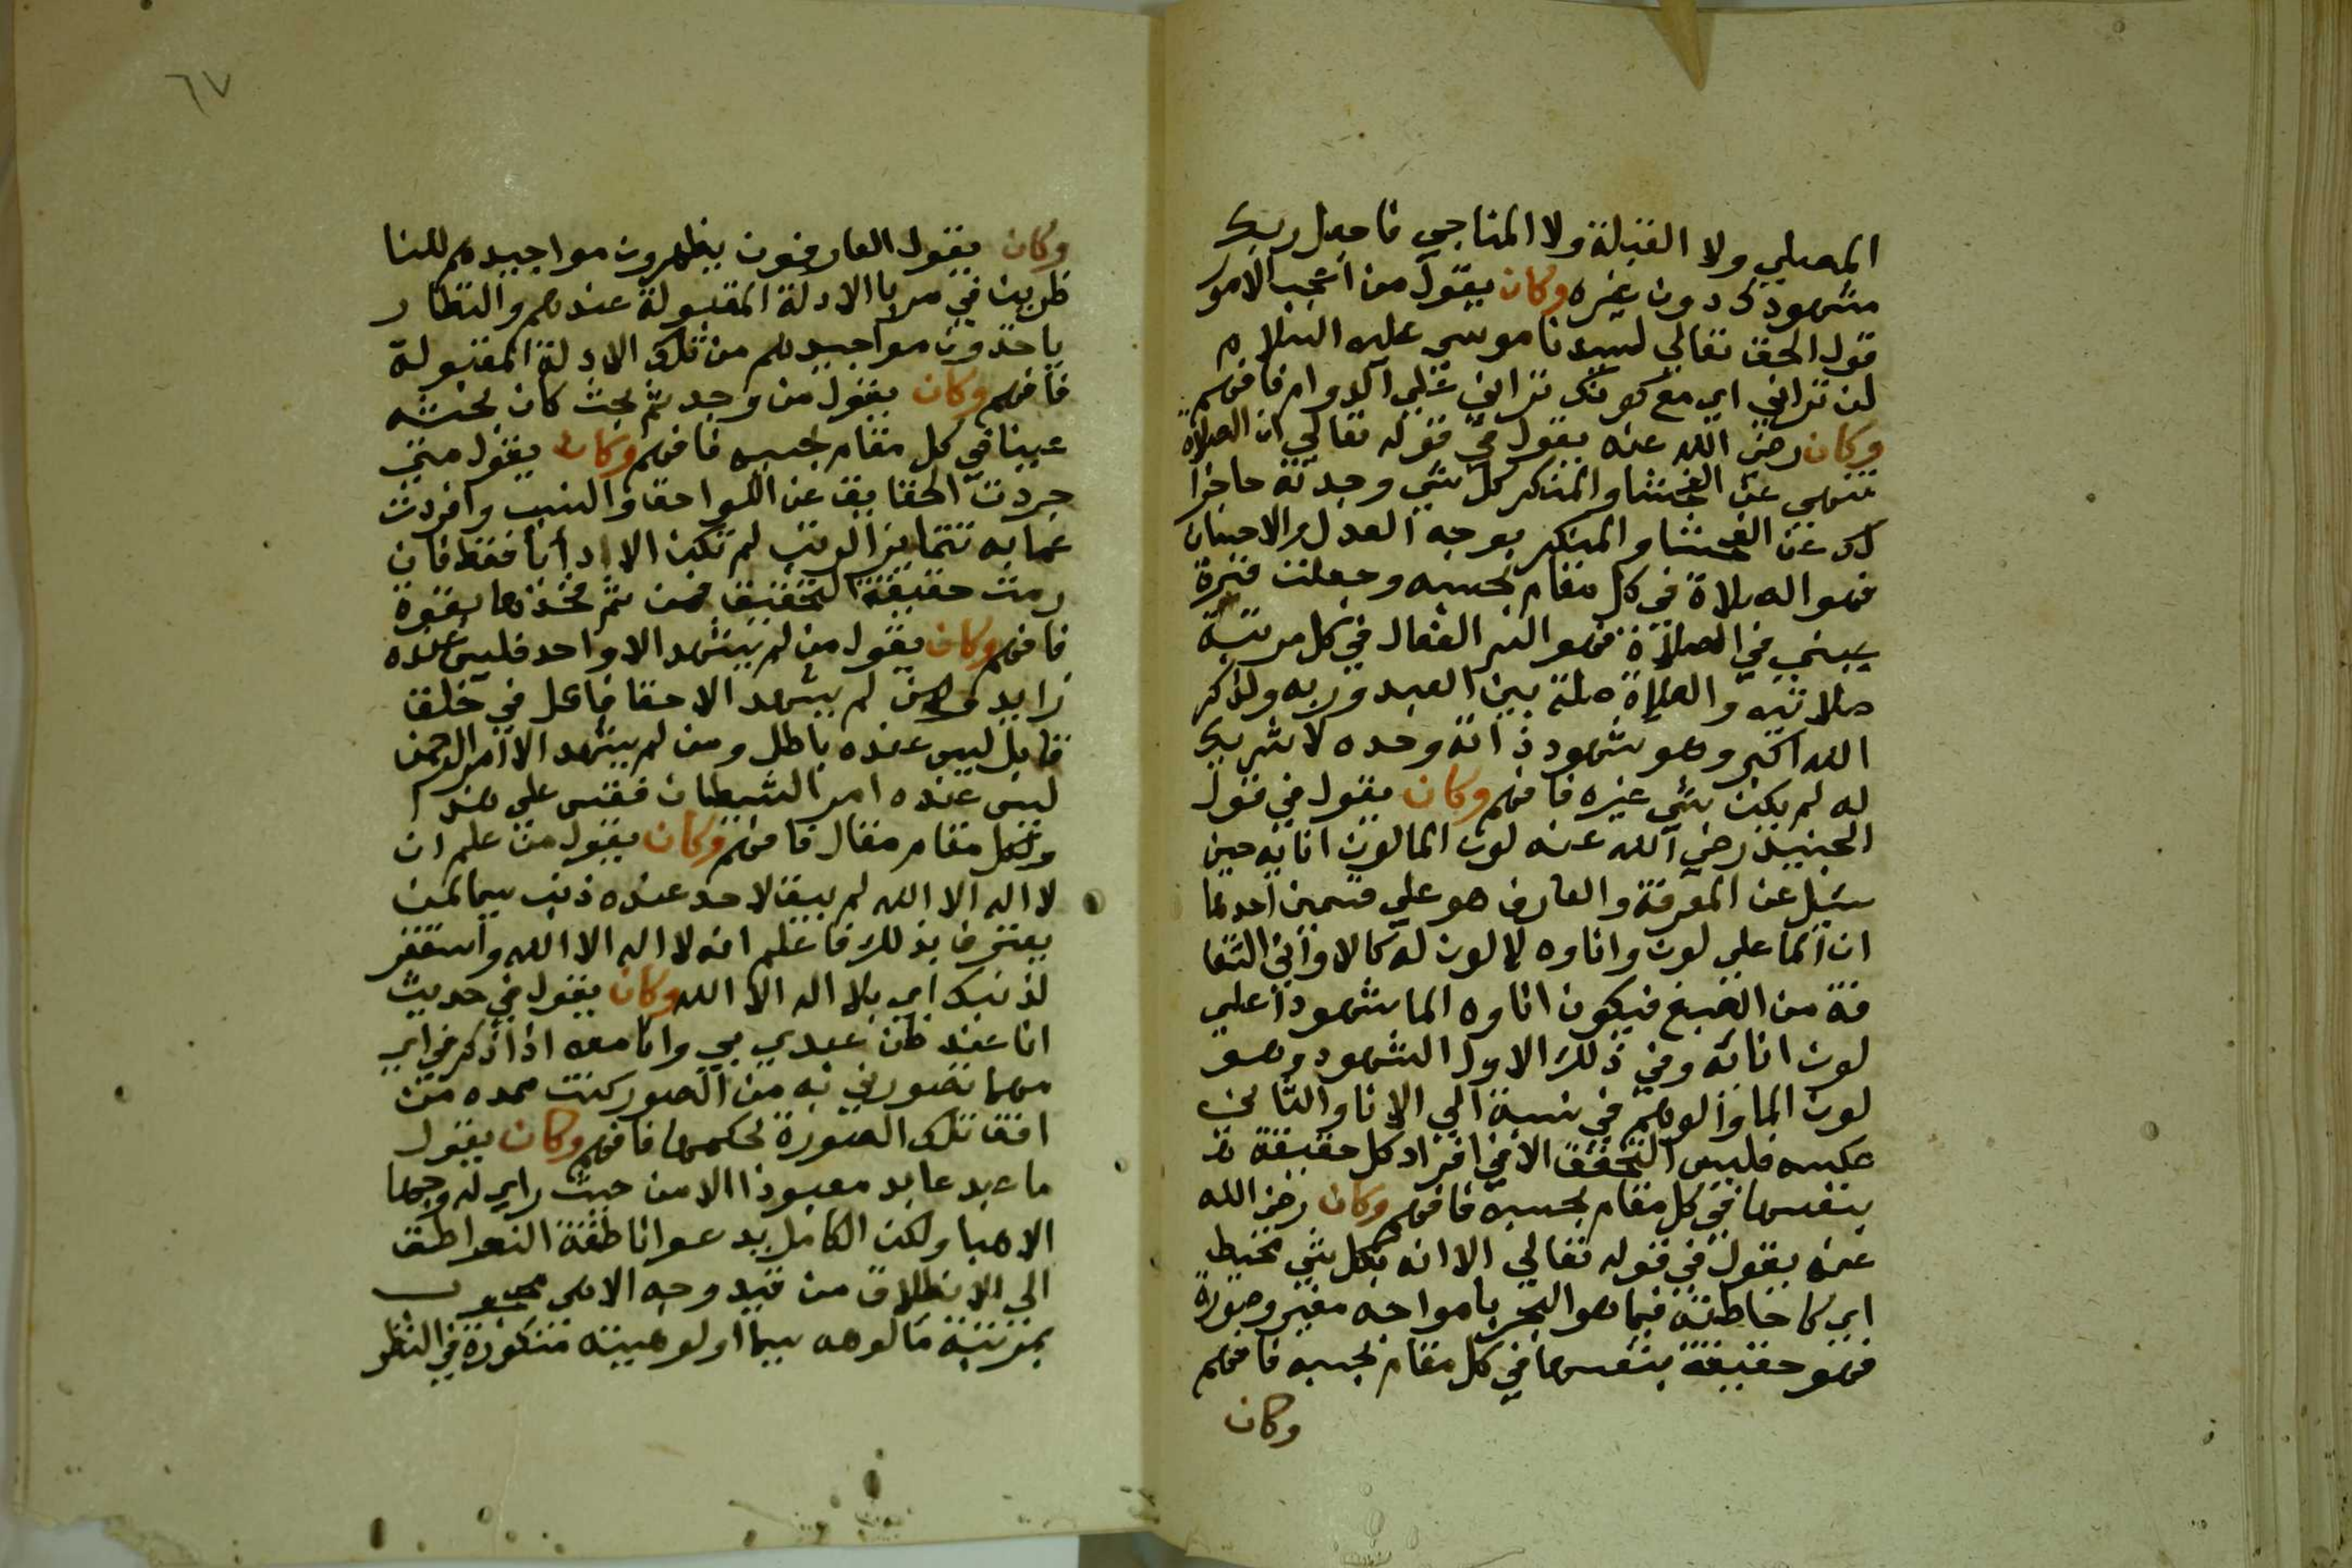 المصلي ولا القبلة ولا المناجي فاجعل ربك
مشهودك دون غيره وكان يقول من اعجب الامور
قول الحق تعالي لسيدنا موسي عليه السلام
لن تراني اي مع كونك تراني علي الدوام فافهم
وكان رضي الله عنه يقول في قوله تعالي ان الصلاة
تنهي عن الفحشا والمنكر كل شي وجدته حاجزا
لك عن الفحشا والمنكر بوجه العدل والاحسان
فهو الصلاة في كل مقام بحسبه وجعلت قرة
عيني في الصلاة فهو السر الفعال في كل مرتبة
صلاتيه والصلاة صلة بين العبد وربه ولذكر
الله اكبر وهو شهود ذاته وحده لا شريك
له لم يكن شي غيره فافهم وكان يقول في قول
الجنيد رضي الله عنه لون الما لون انايه حين
سيل عن المعرفة والعارف هو علي قسمين احدهما
ان الما علي لون واناوه لا لون له كالاواني الشفا
فة من الصبغ فيكون اناوه الما مشهودا علي
لون انائه وفي ذلك الاول الشهود وهو
لون الما والوهم في نسبة الي الانا والثاني
عكسه فليس التحقق الا في افراد كل حقيقة
بنفسها في كل مقام بحسبه فافهم وكان رضي الله
عنه يقول في قوله تعالي الا انه بكل شي محيط
اي كاحاطة فيما هو البحر بامواجه معني وصورة
فهو حقيقة بنفسها في كل مقام بحسبه فافهم
وكان
٦٧
وكان يقول العارفون يظهرون مواجيدهم للنا
ظرين في مرايا الادلة المقبولة عندهم والنظار
ياخذون مواجيدهم من تلك الادلة المقبولة
فافهم وكان يقول من وجد ثم بحث كان بحثه
عبثا في كل مقام بحسبه فافهم وكان يقول متي
جردت الحقايق عن اللواحق والنسب وافردت
عما به تتمايز الرتب لم تكن الا ذاتا فقط فان
رمت حقيقة التحقيق فمن ثم فخذها بقوة
فافهم وكان يقول من لم يشهد الا واحد فليس عنده
زايد ومن لم يشهد الا حقا فاعل في خلق
قابل ليس عنده باطل ومن لم يشهد الا امر الرحمن
ليس عنده امر الشيطان فقس علي هذا
ولكل مقام مقال فافهم وكان يقول من علم ان
لا اله الا الله لم يبق لاحد عنده ذنب سيما لمن
يعترف بذلك فاعلم انه لا اله الا الله واستغفر
لذنبك اي بلا اله الا الله وكان يقول في حديث
انا عند ظن عبدي بي وانا معه اذا ذكرني اي
مهما تصورني به من الصور كنت ممده من
افق تلك الصورة بحكمها فافهم وكان يقول
ما عبد عابد معبودا الا من حيث راي له وجها
الاهيا ولكن الكامل يدعوا ناطقة النواطق
الي الانطلاق من قيد وجه الاهي محجوب
بمرتبة مالوهه سيما اولوهيته منكورة في النظر